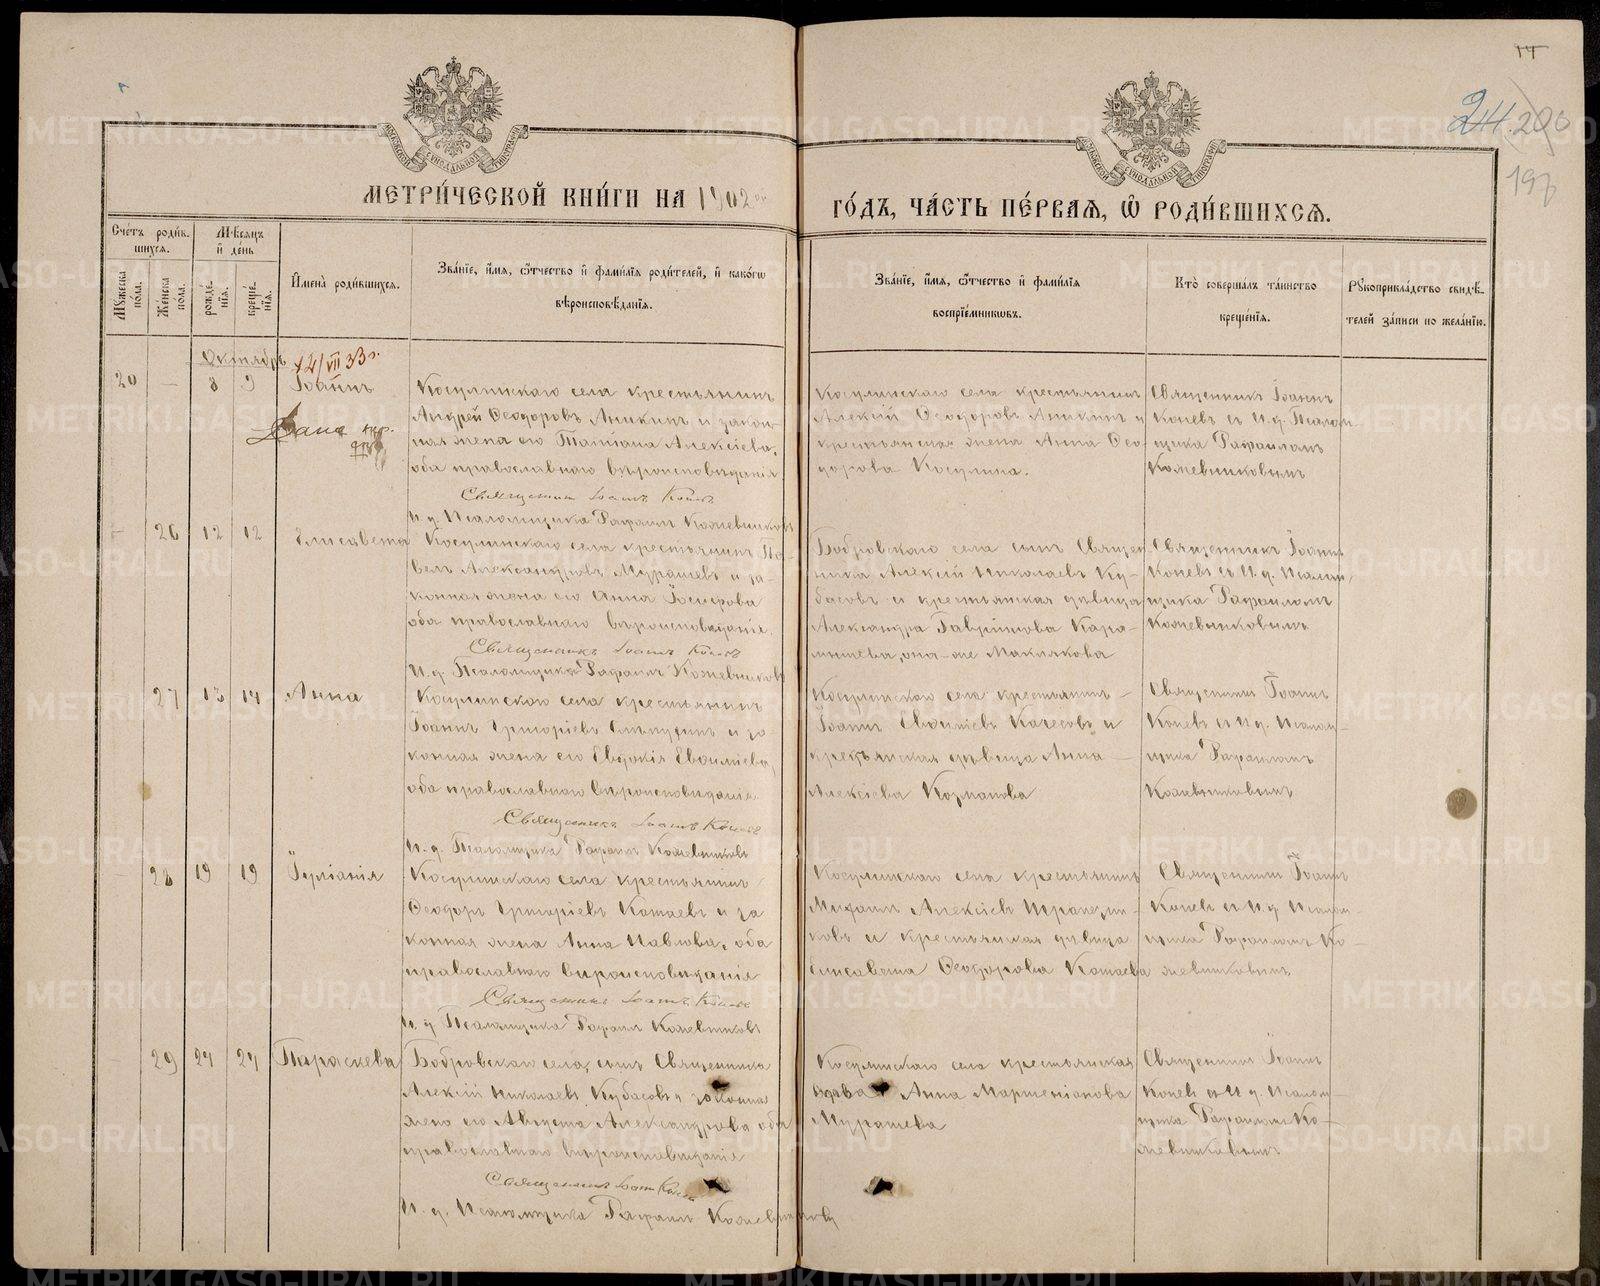 МЕТРИ́ЧЕСКОЙ КНИ́ГИ НА 1902 ой
ГО́ДЪ, ЧА́СТЬ ПЕ́РВАѦ, Ѽ РОДИ́ВШИХСѦ.
244.
197
Сче́тъ роди́в-
шихсѧ.
Мѣ́сѧцъ
и҆ де́нь
Мꙋ́жеска
пола.
Же́нска
пола.
рожде́-
нїѧ.
креще́-
нїѧ.
И҆мена̀ роди́вшихсѧ.
Зва́нїе, и҆́мѧ, ѻ҆́тчество и҆ фами́лїѧ роди́телей, и҆ како́гѡ
вѣроисповѣ́данїѧ.
Зва́нїе, и҆́мѧ, ѻ҆́тчество и҆ фами́лїѧ
воспрїе́мникѡвъ.
Кто̀ соверша́лъ та́инство
креще́нїѧ.
Рꙋкоприкла́дство свидѣ́-
телей за́писи по жела́нїю.
Октябрь
20 — 8 9 Іоаннъ
Косулинскаго села крестьянинъ
Андрей Ѳеодоровъ Аникинъ и закон-
ная жена его Татіана Алексіева,
оба православнаго вѣроисповѣданія
Священникъ Іоаннъ Коневъ
И. д. Псаломщика Рафаилъ Кожевниковъ
Косулинскаго села крестьянинъ
Алексій Ѳеодоровъ Аникинъ и
крестьянская жена Анна Ѳео-
дорова Косулина.
Священникъ Іоаннъ
Коневъ съ И. д. Псалом-
щика Рафаиломъ
Кожевниковымъ
— 26 12 12 Елисавета
Косулинскаго села крестьянинъ Па-
велъ Александровъ Мурашевъ и за-
конная жена его Анна
оба православнаго вѣроисповѣданія.
Священникъ Іоаннъ Коневъ
И. д. Псаломщика Рафаилъ Кожевниковъ
Бобровскаго села сынъ Священ-
ника Алексій Николаевъ Ку-
басовъ и крестьянская дѣвица
Александра Гавріилова Кара-
она-же Маклакова
Священникъ Іоаннъ
Коневъ съ И. д. Псалом-
щика Рафаиломъ
Кожевниковымъ
— 27 13 14 Анна
Косулинскаго села крестьянинъ
Іоаннъ Григоріевъ и за-
конная жена его Евдокія
оба православнаго вѣроисповѣданія
Священникъ Іоаннъ Коневъ
И. д. Псаломщика Рафаилъ Кожевниковъ
Косулинскаго села крестьянинъ
Іоаннъ Качесовъ и
крестьянская дѣвица Анна
Алексіева
Священникъ Іоаннъ
Коневъ съ И. д. Псалом-
щика Рафаиломъ
Кожевниковымъ
— 28 19 19 Іуліанія
Косулинскаго села крестьянинъ
Ѳеодоръ Григоріевъ Котаевъ и за-
конная жена Анна Павлова, оба
православнаго вѣроисповѣданія
Священникъ Іоаннъ Коневъ
И. д. Псаломщика Рафаилъ Кожевниковъ
Косулинскаго села крестьянинъ
Михаилъ Алексіевъ Трапезни-
ковъ и крестьянская дѣвица
Елисавета Ѳеодорова Котаева
Священникъ Іоаннъ
Коневъ съ И. д. Псалом-
щика Рафаиломъ Ко-
жевниковымъ
— 29 27 27 Параскева
Бобровскаго села, сынъ Священника
Алексій Николаевъ Кубасовъ и законная
жена его Августа Александрова оба
православнаго вѣроисповѣданія
Священникъ Іоаннъ Коневъ
И. д. Псаломщика Рафаилъ Кожевниковъ
Косулинскаго села крестьянская
вдова Анна Мартеніанова
Мурашева
Священникъ Іоаннъ
Коневъ съ И. д. Псалом-
щика Рафаиломъ Ко-
жевниковымъ
METRIKI.GASO-URAL.RU